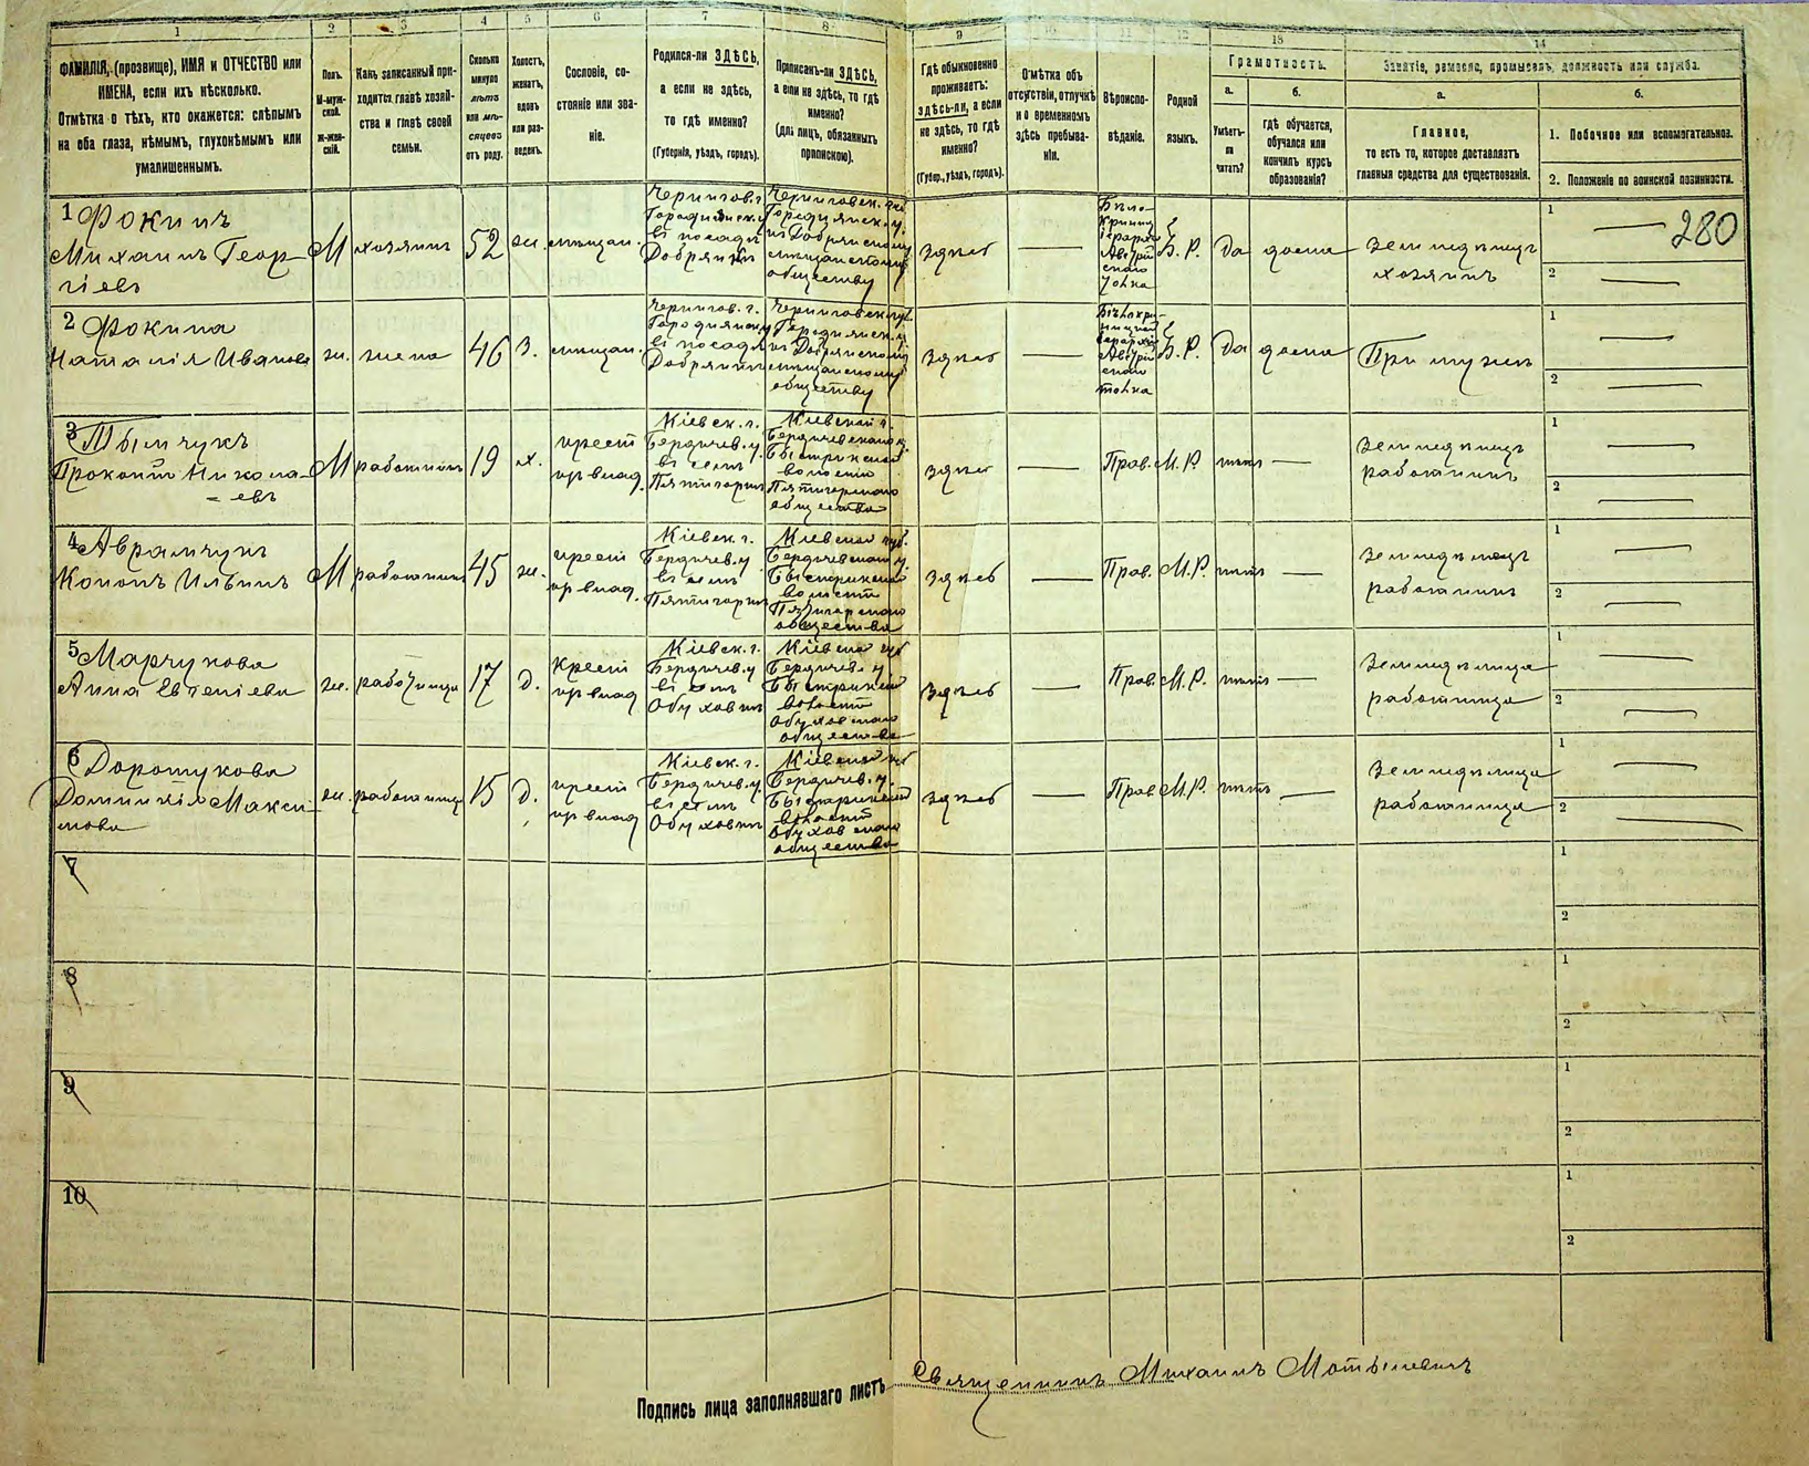 1 2 3 4 5 6 7 8 9 10 11 12 13 14
ФАМИЛІЯ, (прозвище), ИМЯ и ОТЧЕСТВО или
ИМЕНА, если ихъ нѣсколько.
Отмѣтка о тѣхъ, кто окажется: слѣпымъ
на оба глаза, нѣмымъ, глухонѣмымъ или
умалишеннымъ.
Полъ.
М-муж-
ской.
Ж-жен-
скій.
Какъ записанный при-
ходится главѣ хозяй-
ства и главѣ своей
семьи.
Сколько
минуло
лѣтъ
или мѣ-
сяцевъ
отъ роду.
Холостъ,
женатъ,
вдовъ
или раз-
веденъ.
Сословіе, со-
стояніе или зва-
ніе.
Родился-ли ЗДѢСЬ,
а если не здѣсь,
то гдѣ именно?
(Губернія, уѣздъ, городъ).
Приписанъ-ли ЗДѢСЬ,
а если не здѣсь, то гдѣ
именно?
(для лицъ, обязанныхъ
припискою).
Гдѣ обыкновенно
проживаетъ:
здѣсь-ли, а если
не здѣсь, то гдѣ
именно?
(Губер., уѣздъ, городъ).
Отмѣтка объ
отсутствіи, отлучкѣ
и о временномъ
здѣсь пребыва-
ніи.
Вѣроиспо-
вѣданіе.
Родной
языкъ.
Грамотность.
а.
Умѣетъ-
ли
читать?
б.
гдѣ обучается,
обучался или
кончилъ курсъ
образованія?
Занятіе, ремесло, промыселъ, должность или служба.
а.
Главное,
то есть то, которое доставляетъ
главныя средства для существованія.
б.
1. Побочное или вспомогательное.
2. Положеніе по воинской повинности.
1 Фокинъ
Михаилъ Геор-
гіевъ
М
хозяинъ
52
ж.
мѣщан.
Чернигов. г.
Городнянск. у
въ посадѣ
Добрянкѣ
Черниговск. губ.
Городнянск. у.
къ Добрянскому
мѣщанскому
обществу
здѣсь
—
Бѣло-
Криниц
іерархіи
Австрій
скаго
толка
Б. Р.
да
дома
Земледѣлецъ
хозяинъ
1 — 280
2 —
2 Фокина
Наталія Иванова
ж.
жена
46
З.
мѣщан.
Чернигов. г.
Городнянск. у
въ посадѣ
Добрянкѣ
Черниговск. губ.
Городнянск. у.
къ Добрянскому
мѣщанскому
обществу
здѣсь
—
Бѣлокри-
ницкой
іерархіи
Австрій
скаго
толка
Б. Р.
да
дома
При мужѣ
1 —
2 —
3
Прокопій Никола-
= евъ
М
работникъ
19
х.
крест
пр влад.
Кіевск. г.
Бердичев. у.
въ селѣ
Пятигоркѣ
Кіевской г.
Бердичевскаго у.
Быстрикской
волости
Пятигорскаго
общества
здѣсь
—
Прав.
М. Р.
нѣтъ
—
Земледѣлецъ
работникъ
1 —
2 —
4 Аврамчукъ
Кононъ Ильинъ
М
работникъ
45
ж.
крест
пр влад.
Кіевск. г.
Бердичев. у
въ селѣ
Пятигоркѣ
Кіевской губ.
Бердичевскаго у.
Быстрикской
волости
Пятигорскаго
общества
здѣсь
—
Прав.
М. Р.
нѣтъ
—
Земледѣлецъ
работникъ
1 —
2 —
5 Марчукова
Анна Евгеніева
ж.
работница
17
д.
Крест
пр влад
Кіевск. г.
Бердичев. у
въ селѣ
Обуховкѣ
Кіевской губ
Бердичев. у
Быстрикской
волости
Обуховскаго
общества
здѣсь
—
Прав.
М. Р.
нѣтъ
—
Земледѣлица
работница
1 —
2 —
6 Дорошукова
Домникія Макси-
мова
ж.
работница
15
д.
крест
пр влад
Кіевск. г.
Бердичев. у.
въ селѣ
Обуховкѣ
Кіевской губ
Бердичев. у.
Быстрикской
волости
Обуховскаго
общества
здѣсь
—
Прав
М. Р.
нѣтъ
—
Земледѣлица
работница
1 —
2 —
7
1
2
8
1
2
9
1
2
10
1
2
Подпись лица заполнявшаго листъ Священникъ Михаилъ